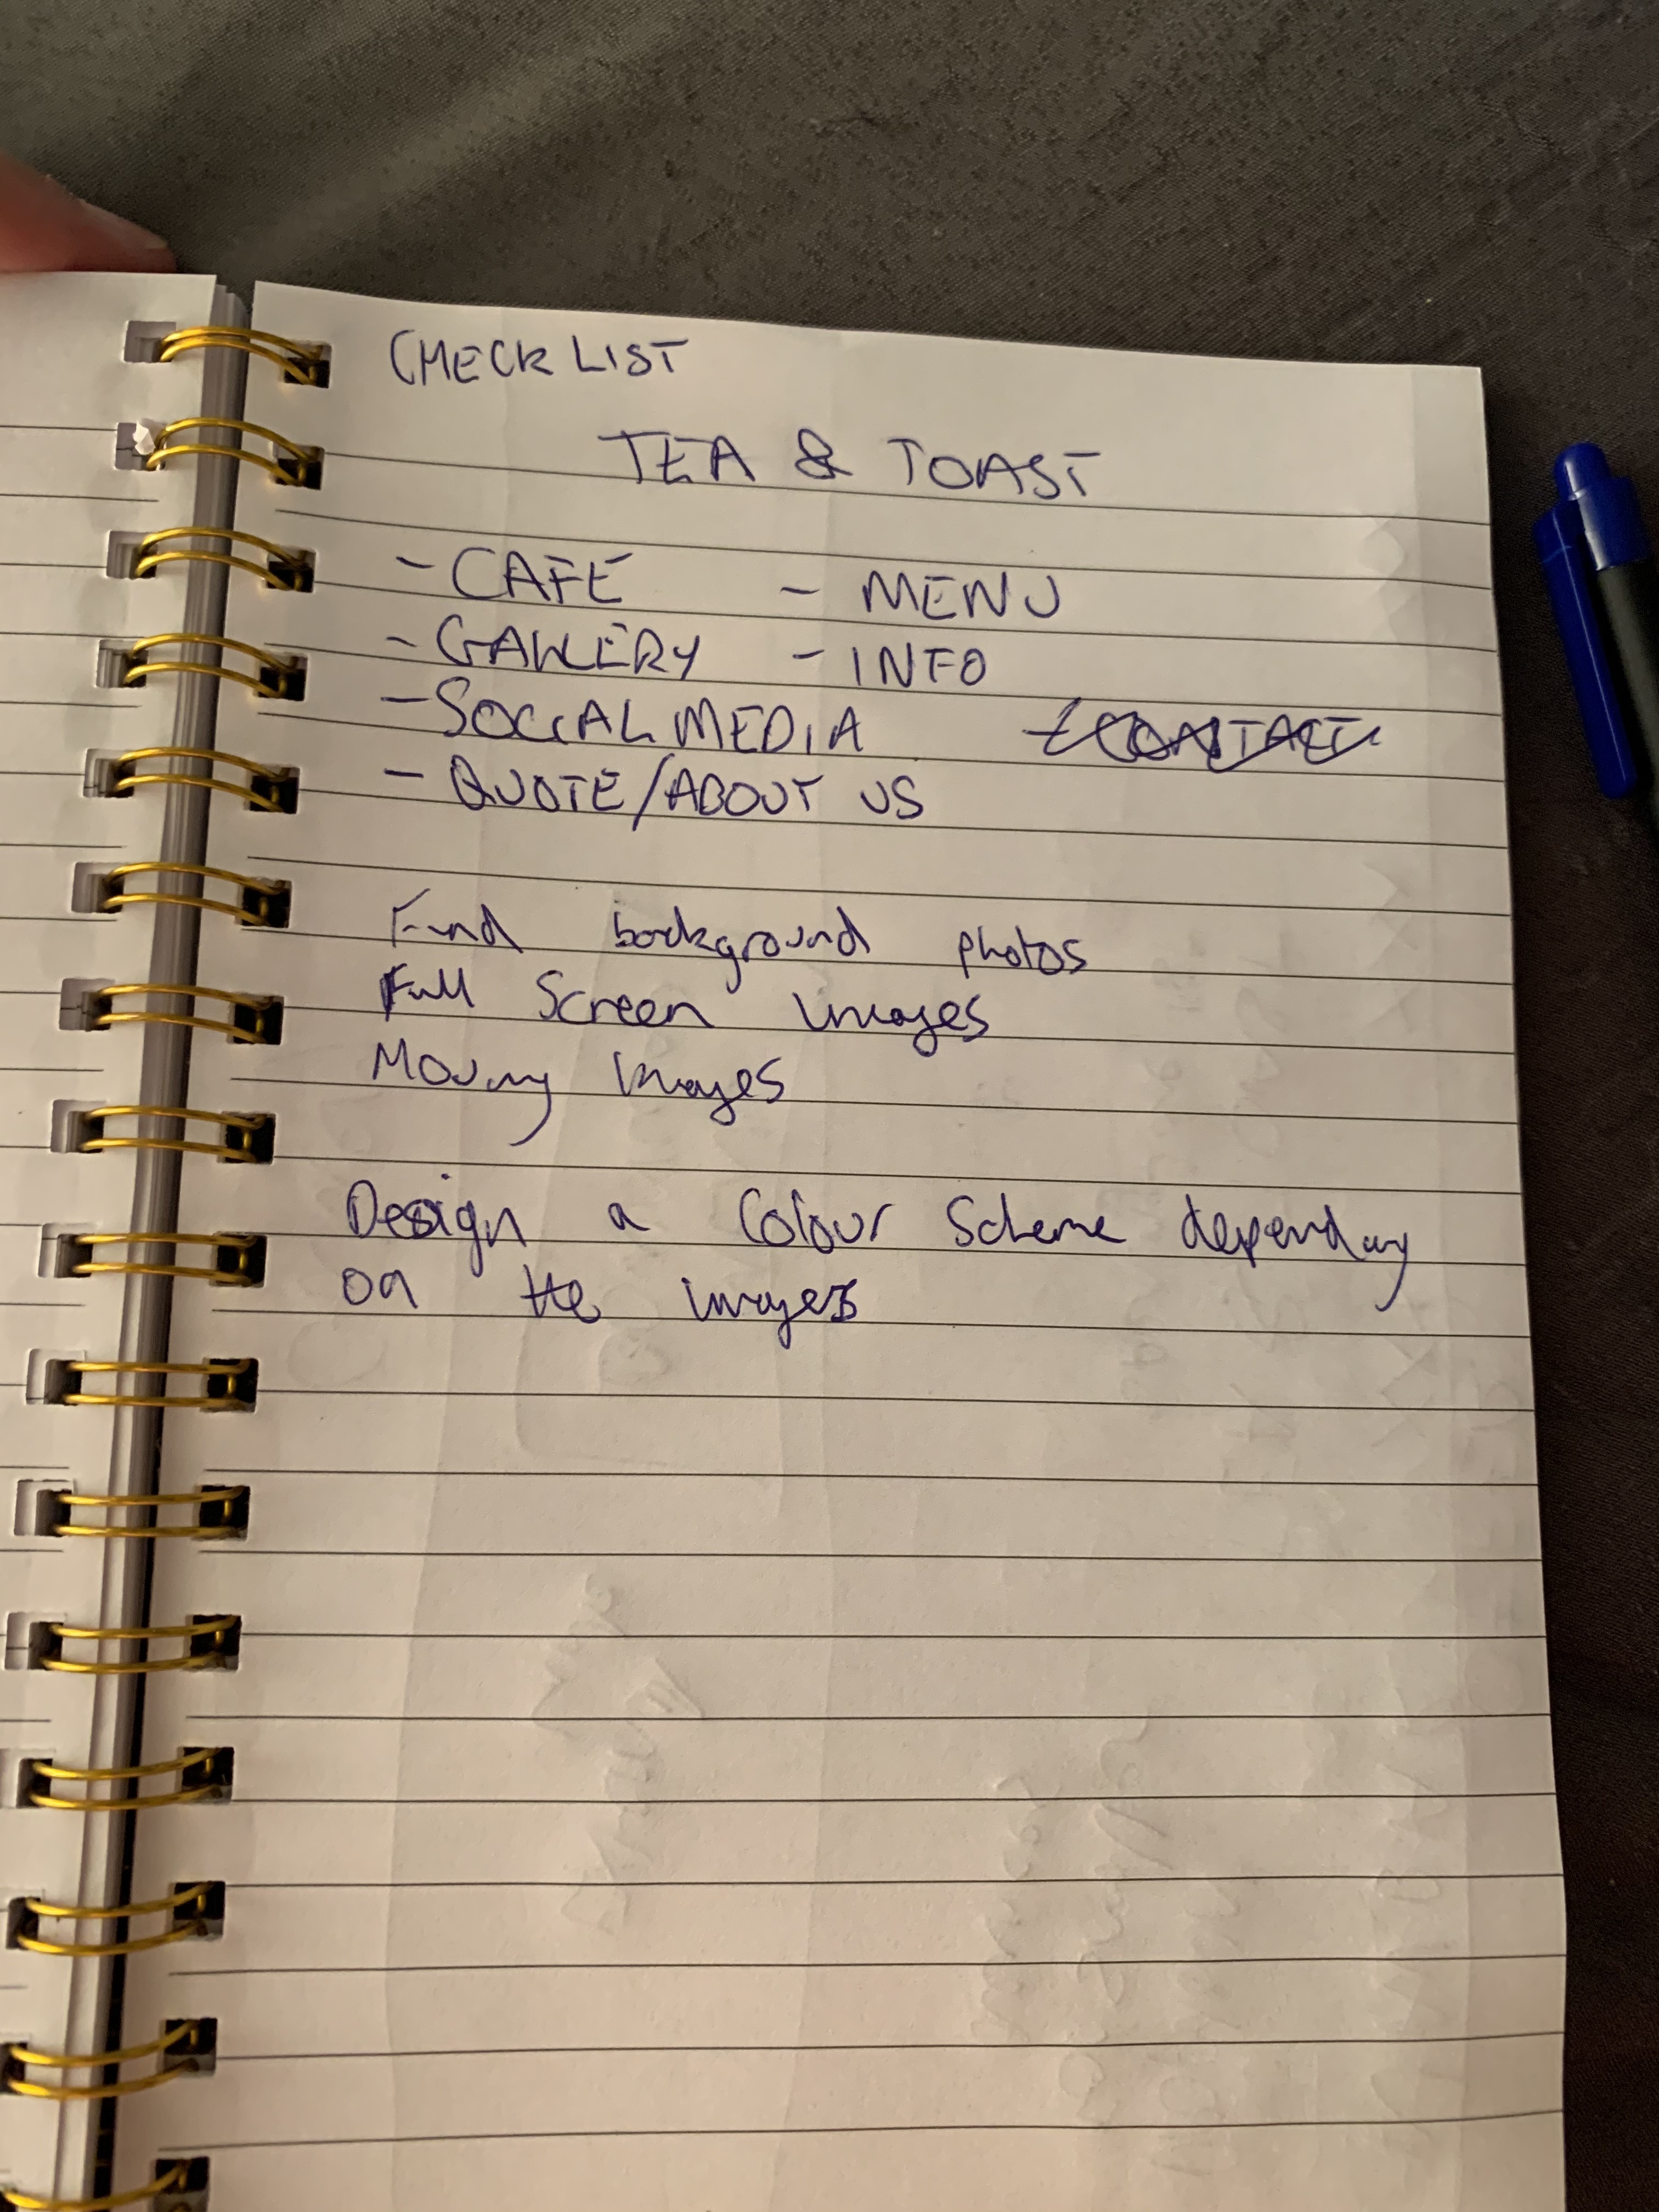 CHECK LIST
TEA & TOAST
- CAFE - MENU
- GALLERY - INFO
- SOCIAL MEDIA - CONTACT
- QUOTE/ABOUT US
Find background photos
Full Screen Images
Moving Images
Design a Colour Scheme depending
on the images